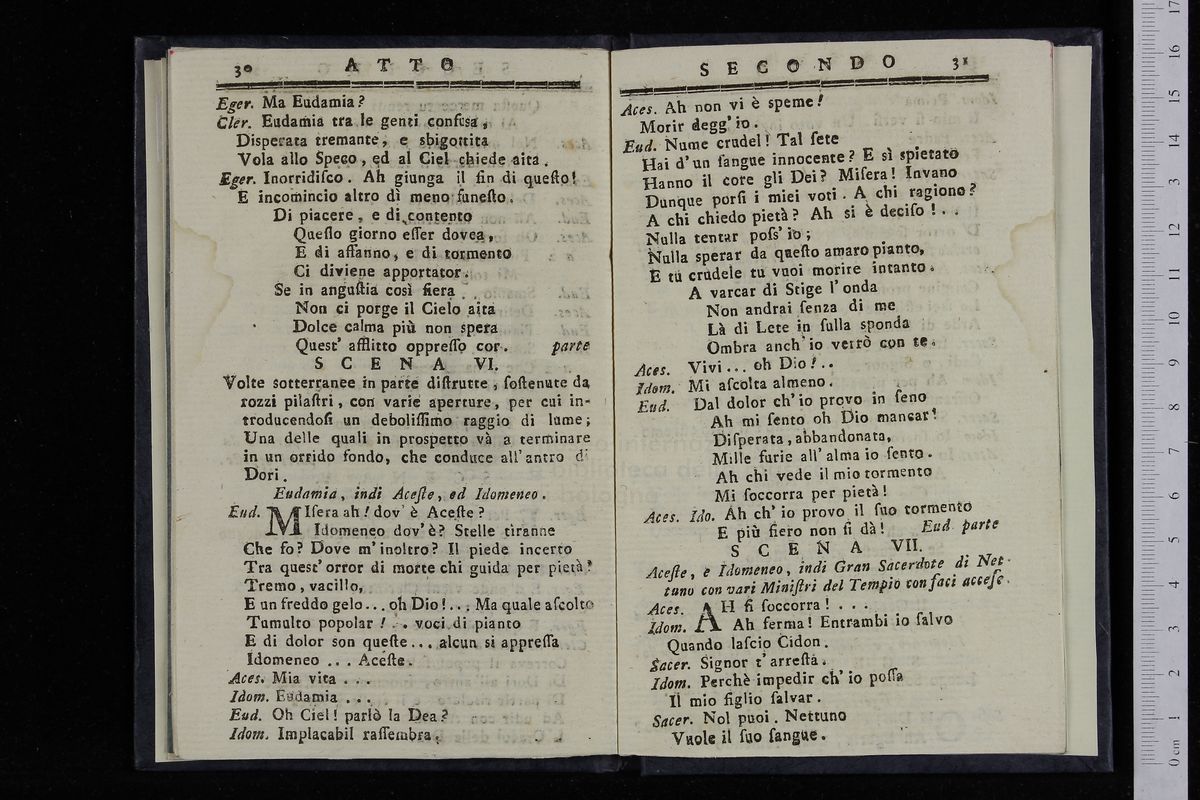 30 ATTO
Eger. Ma Eudamia?
Cler. Eudamia tra le genti confusa,
Disperata tremante, e sbigottita
Vola allo Speco, ed al Ciel chiede aita.
Eger. Inorridiſco. Ah giunga il fin di queſto!
E incomincio altro dì meno funeſto.
Di piacere, e di contento
Queſto giorno eſſer dovea,
E di affanno, e di tormento
Ci diviene apportator.
Se in anguſtia così fiera
Non ci porge il Cielo aita
Dolce calma più non spera
Quest' afflitto oppreſſo cor. parte
SCENA VI.
Volte sotterranee in parte diſtrutte, ſoſtenute da
rozzi pilaſtri, con varie aperture, per cui in-
troducendoſi un deboliſſimo raggio di lume;
Una delle quali in prospetto và a terminare
in un orrido fondo, che conduce all' antro di
Dori.
Eudamia, indi Aceſte, ed Idomeneo.
Eud. MIſera ah! dov' è Aceſte?
Idomeneo dov' è? Stelle tiranne
Che fo? Dove m' inoltro? Il piede incerto
Tra quest' orror di morte chi guida per pietà?
Tremo, vacillo,
E un freddo gelo... oh Dio!... Ma quale aſcolto
Tumulto popolar!... voci di pianto
E di dolor son queſte... alcun si appreſſa
Idomeneo... Aceſte.
Aces. Mia vita...
Idom. Eudamia...
Eud. Oh Ciel! parlò la Dea?
Idom. Implacabil raſſembra,
SECONDO 31
Aces. Ah non vi è speme!
Morir degg' io.
Eud. Nume crudel! Tal ſete
Hai d' un ſangue innocente? E sì spietato
Hanno il core gli Dei? Miſera! Invano
Dunque porſi i miei voti. A chi ragiono?
A chi chiedo pietà? Ah si è deciſo!..
Nulla tentar poſs' io;
Nulla sperar da queſto amaro pianto,
E tu crudele tu vuoi morire intanto.
A varcar di Stige l' onda
Non andrai ſenza di me
Là di Lete in ſulla sponda
Ombra anch' io verrò con te.
Aces. Vivi... oh Dio!..
Idom. Mi aſcolta almeno.
Eud. Dal dolor ch' io provo in ſeno
Ah mi ſento oh Dio mancar!
Diſperata, abbandonata,
Mille furie all' alma io ſento.
Ah chi vede il mio tormento
Mi ſoccorra per pietà!
Aces. Ido. Ah ch' io provo il ſuo tormento
E più fiero non ſi dà! Eud parte
SCENA VII.
Aceſte, e Idomeneo, indi Gran Sacerdote di Net-
tuno con vari Miniſtri del Tempio con faci acceſe.
Aces. AH ſi ſoccorra!...
Idom. Ah ferma! Entrambi io ſalvo
Quando laſcio Cidon.
Sacer. Signor t' arreſta.
Idom. Perchè impedir ch' io poſſa
Il mio figlio ſalvar.
Sacer. Nol puoi. Nettuno
Vuole il ſuo ſangue.